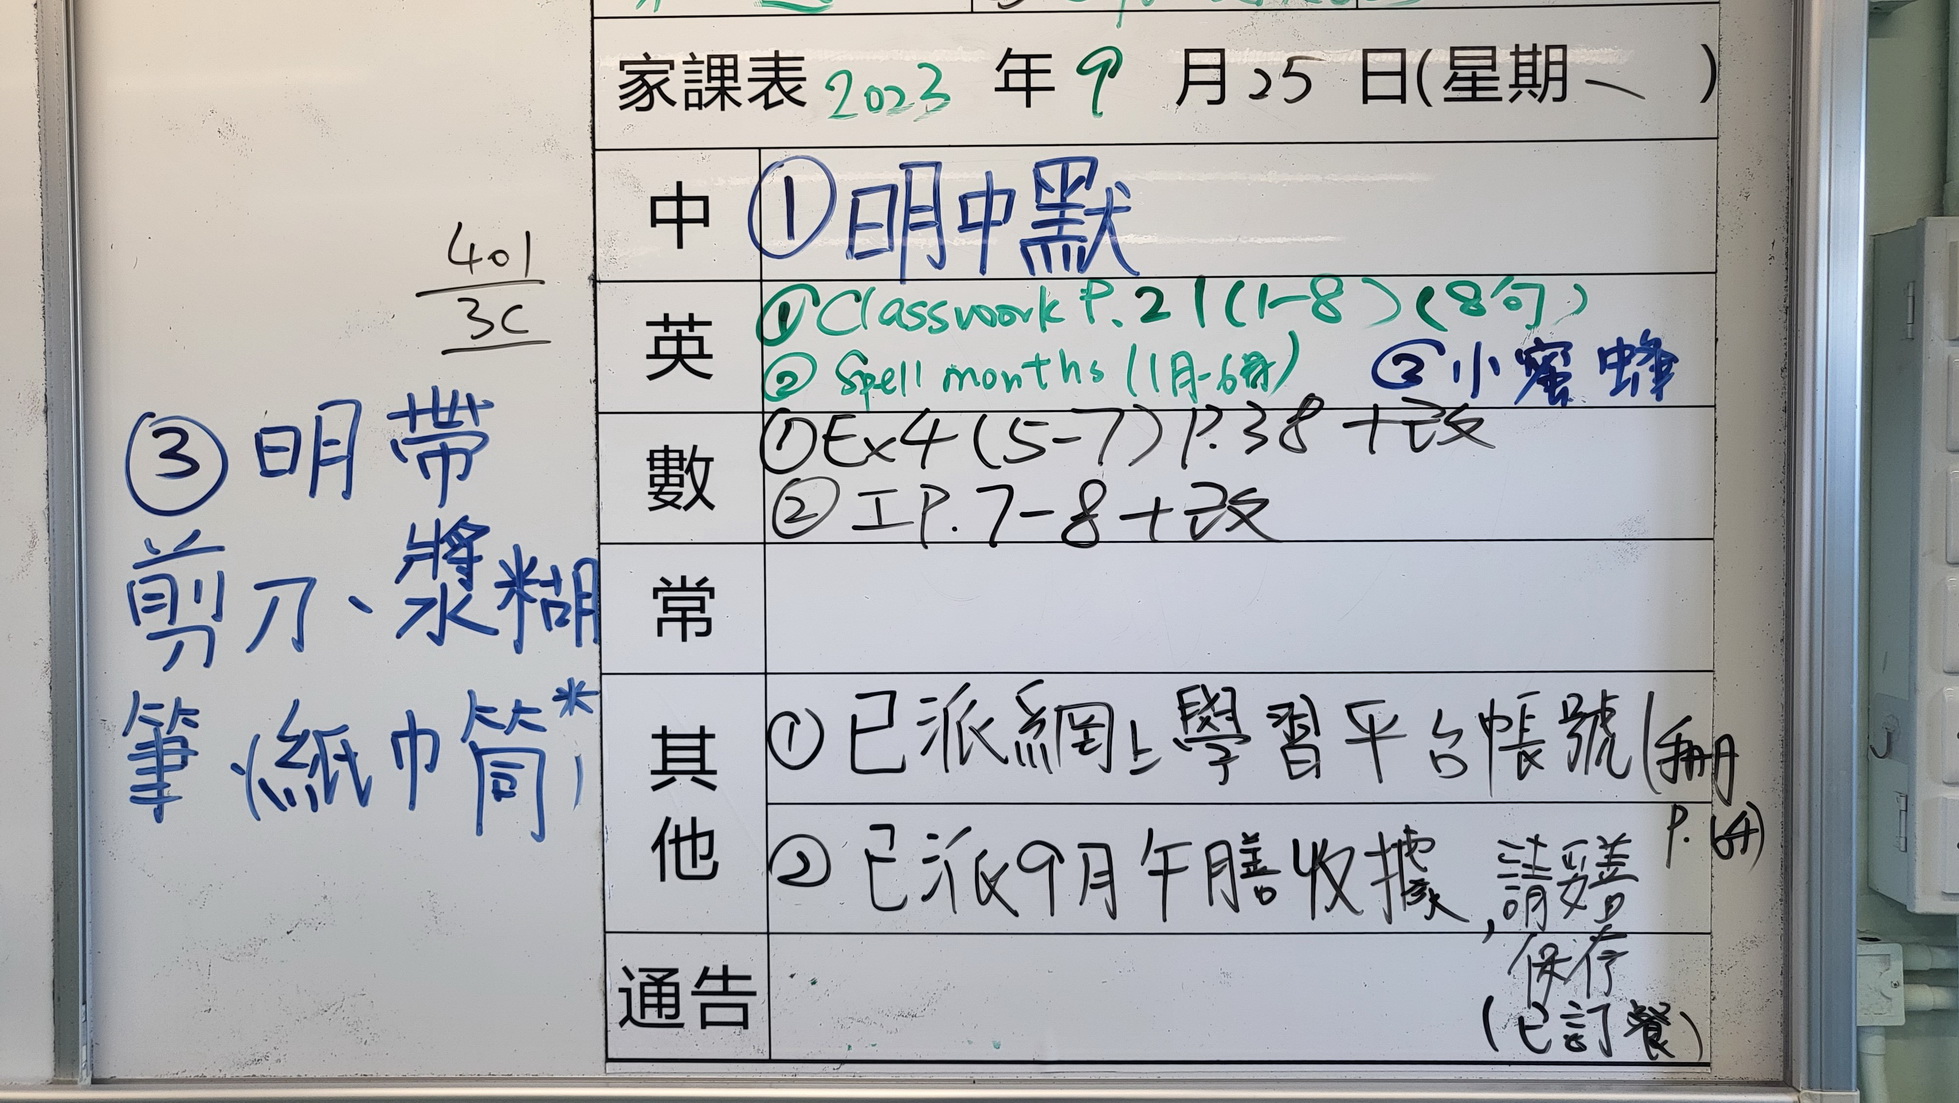 家課表 2023 年 9 月 25 日(星期一)
中 ①明中默
英 ①Classwork P.21(1-8)(8句)
② Spell months (1月-6月) ②小蜜蜂
數 ①Ex4(5-7)P.38+改
② IP.7-8+改
常
其他 ①已派網上學習平台帳號(手冊
P.64)
②已派9月午膳收據,請妥善
保存
(已訂餐)
通告
401
3C
③明帶
剪刀、漿糊
筆(紙巾筒*)